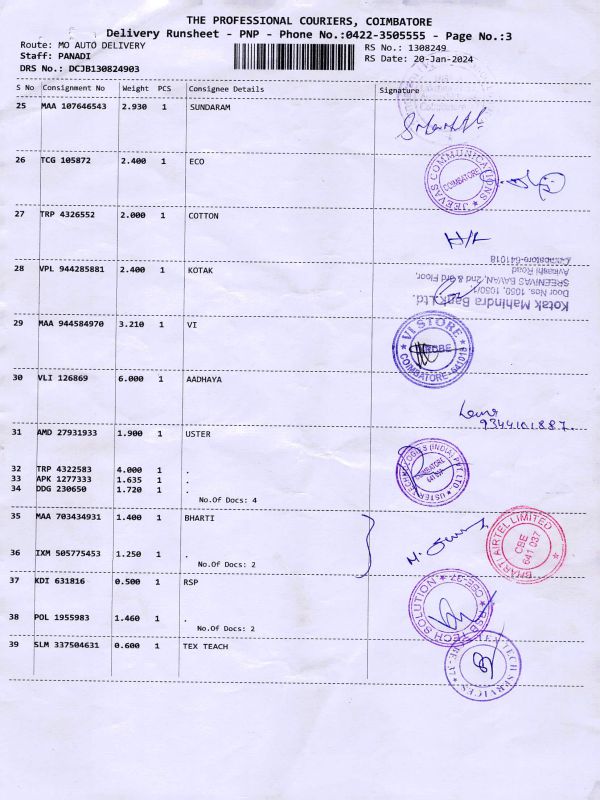 THE PROFESSIONAL COURIERS, COIMBATORE
Delivery Runsheet - PNP - Phone No.:0422-3505555 - Page No.:3
Route: MO AUTO DELIVERY RS No.: 1308249
Staff: PANADI RS Date: 20-Jan-2024
DRS No.: DCJB130824903
S No Consignment No Weight PCS Consignee Details Signature
25 MAA 107646543 2.930 1 SUNDARAM
26 TCG 105872 2.400 1 ECO
JEEVAS COMMUNICATIONS
COIMBATORE
27 TRP 4326552 2.000 1 COTTON
28 VPL 944285881 2.400 1 KOTAK
Kotak Mahindra Bank Ltd.
Door Nos. 1059, 1060/1,
SREENIVAS BAVAN, 2nd & 3rd Floor,
Avinashi Road
Coimbatore-641018
29 MAA 944584970 3.210 1 VI
VI STORE
COIMBATORE-641018
30 VLI 126869 6.000 1 AADHAYA
9344101887.
31 AMD 27931933 1.900 1 USTER
32 TRP 4322583 4.000 1 .
33 APK 1277333 1.635 1 .
34 DDG 230650 1.720 1 .
No.Of Docs: 4
USTER TECHNOLOGIES (INDIA) PVT LTD
COIMBATORE
35 MAA 703434931 1.400 1 BHARTI
36 IXM 505775453 1.250 1 .
No.Of Docs: 2
BHARTI AIRTEL LIMITED
CBE
641 037
37 KDI 631816 0.500 1 RSP
38 POL 1955983 1.460 1 .
No.Of Docs: 2
TECH SOLUTION
CBE-37
39 SLM 337504631 0.600 1 TEX TEACH
TECH SERVICES